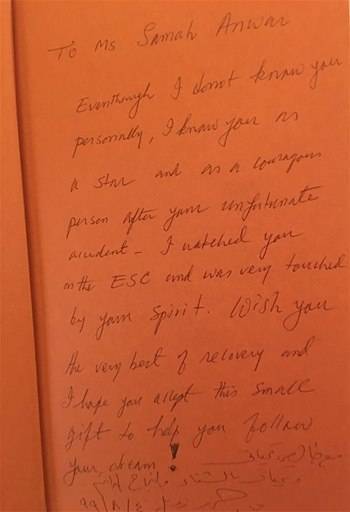 To Ms Samah Anwar
Eventhough I donot know you
personally, I know you as
a star and as a courageous
person after your unfortunate
accident - I watched you
on the ESC and was very touched
by your Spirit. Wish you
the very best of recovery and
I hope you accept this small
gift to help you follow
your dream!